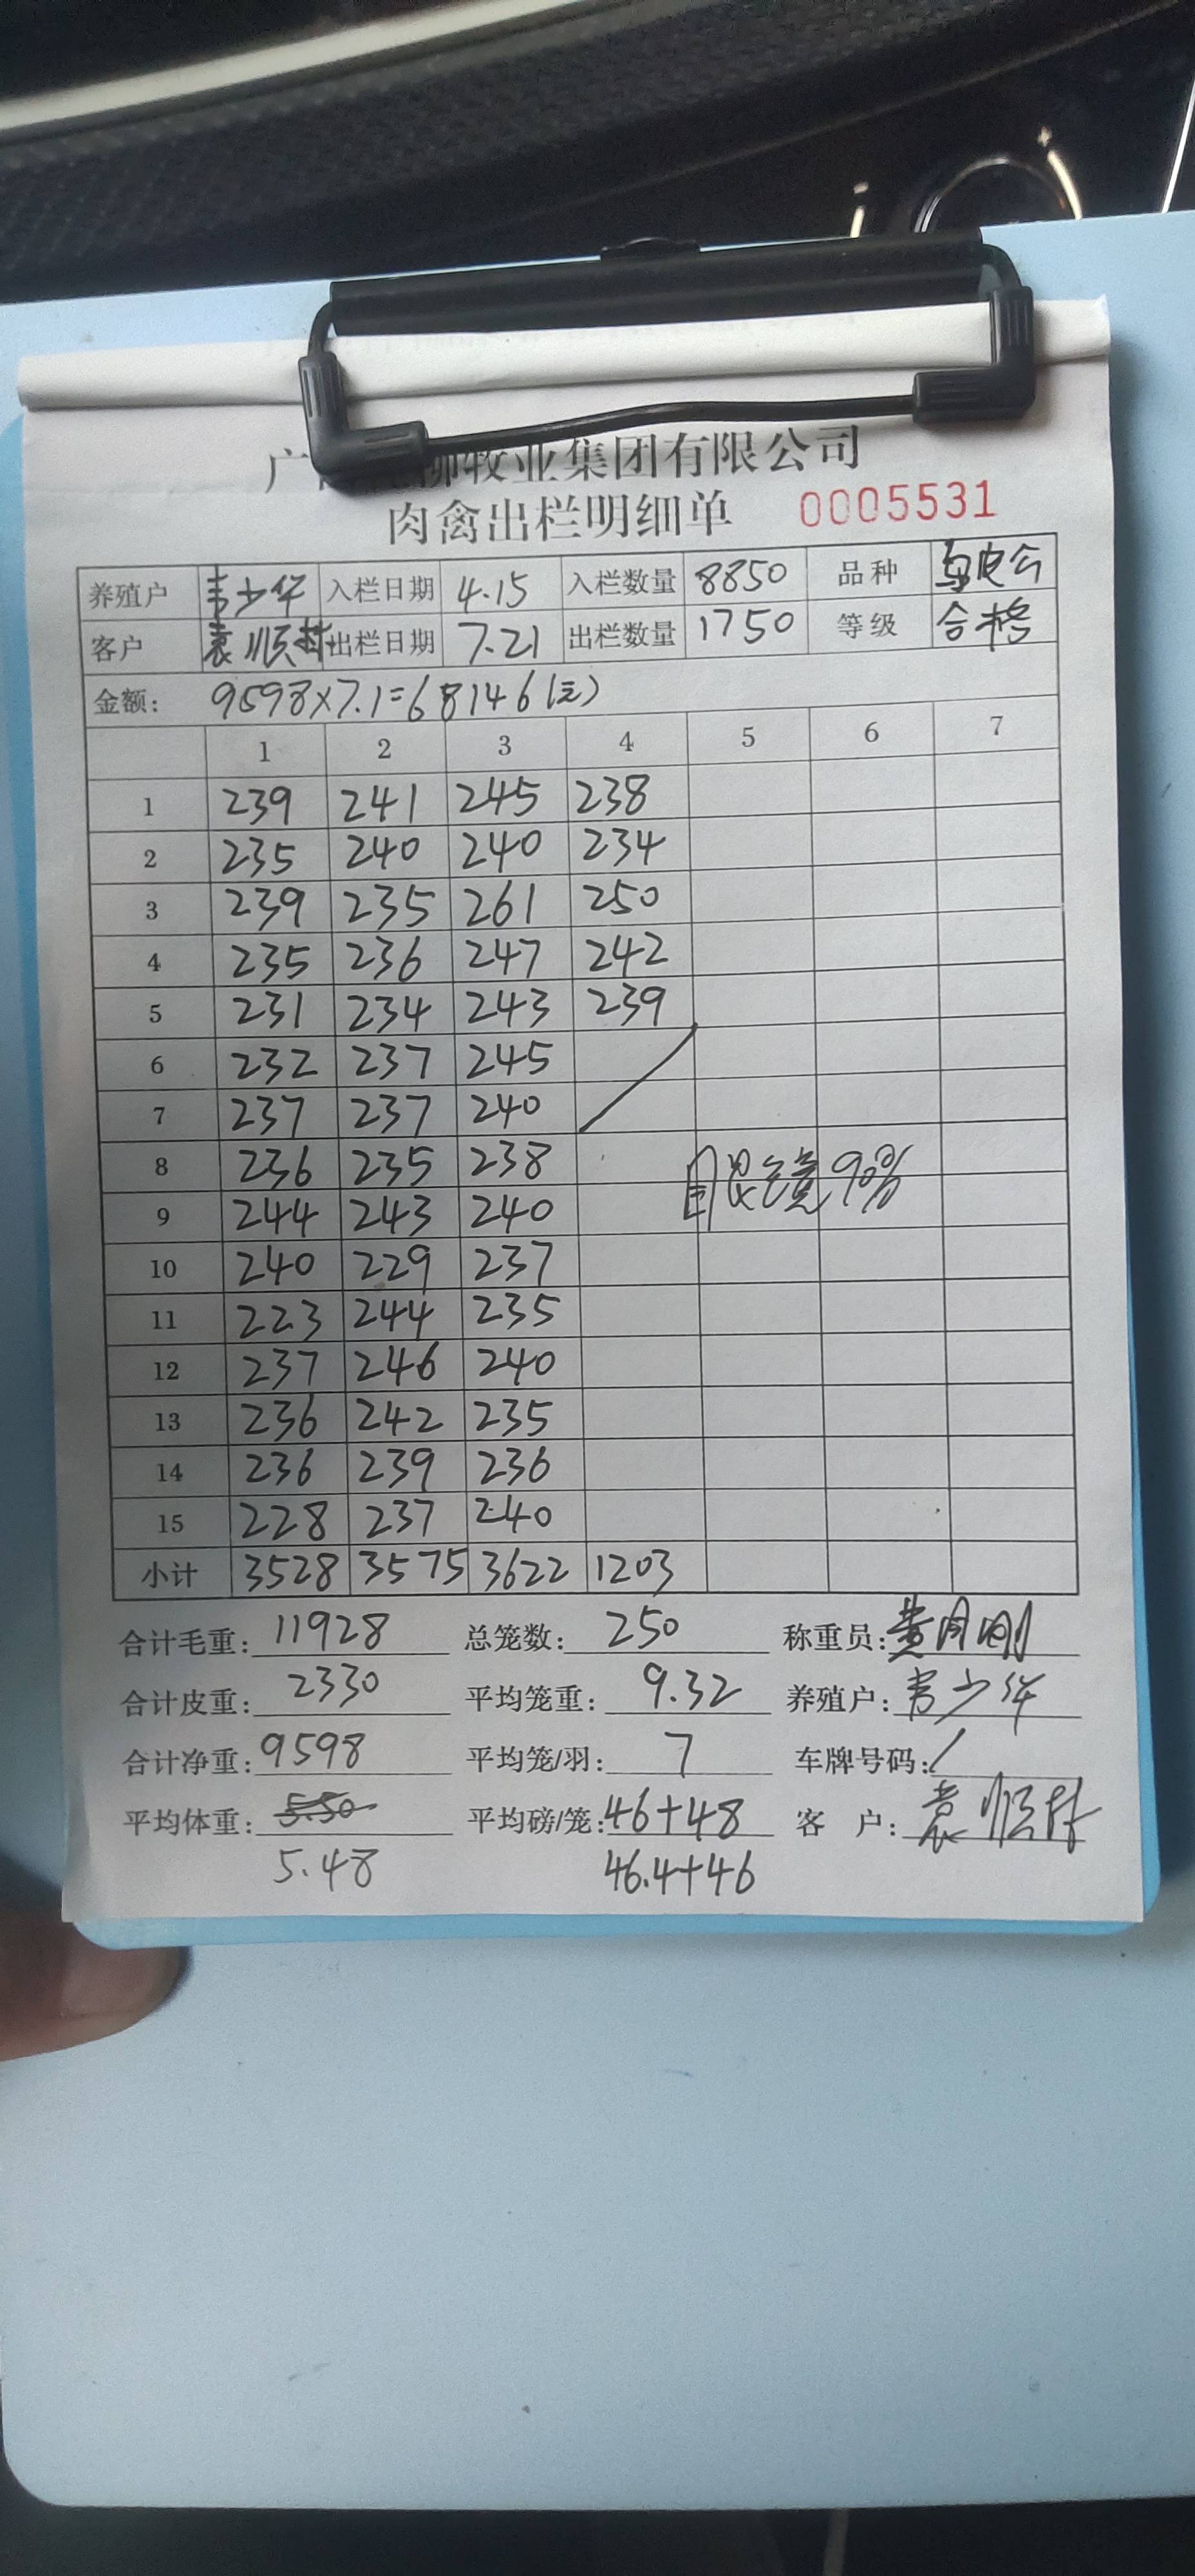 广 牧业集团有限公司
肉禽出栏明细单 0005531
养殖户 韦少华 入栏日期 4.15 入栏数量 8850 品种 乌皮公
客户 袁顺林 出栏日期 7.21 出栏数量 1750 等级 合格
金额: 9598×7.1=68146(元)
1 2 3 4 5 6 7
1 239 241 245 238
2 235 240 240 234
3 239 235 261 250
4 235 236 247 242
5 231 234 243 239
6 232 237 245
7 237 237 240
8 236 235 238 眼镜90%
9 244 243 240
10 240 229 237
11 223 244 235
12 237 246 240
13 236 242 235
14 236 239 236
15 228 237 240
小计 3528 3575 3622 1203
合计毛重: 11928 总笼数: 250 称重员: 黄月刚
合计皮重: 2330 平均笼重: 9.32 养殖户: 韦少华
合计净重: 9598 平均笼/羽: 7 车牌号码: /
平均体重: 5.50 平均磅/笼: 46+48 客 户: 袁顺林
5.48 46.4+46